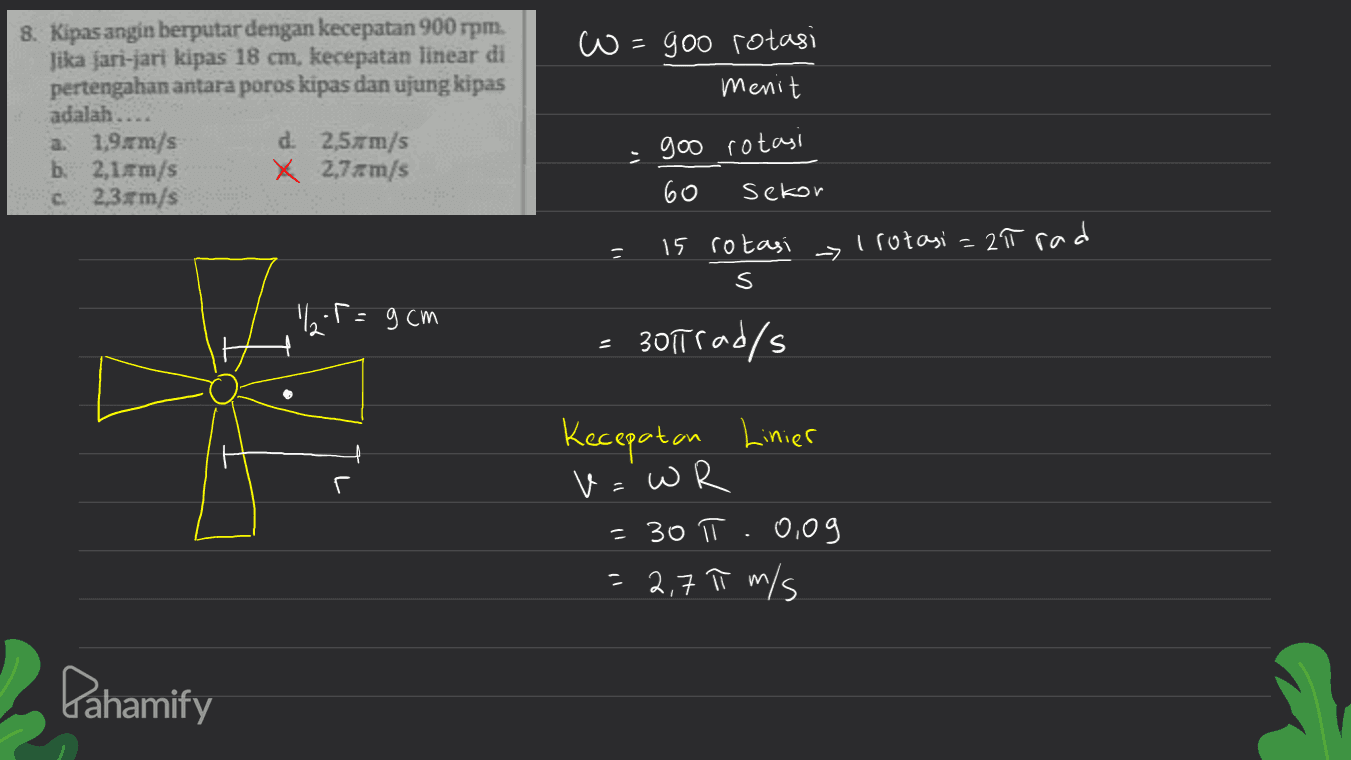 8. Kipas angin berputar dengan kecepatan 900 rpm.
Jika jari-jari kipas 18 cm, kecepatan linear di
pertengahan antara poros kipas dan ujung kipas
adalah....
a. 1,9πm/s d. 2,5πm/s
b. 2,1πm/s 2,7πm/s
c. 2,3πm/s
ω = 900 rotasi
menit
= 900 rotasi
60 sekon
= 15 rotasi → 1 rotasi = 2π rad
s
= 30π rad/s
1/2.r = 9 cm
r
Kecepatan Linier
v = ωR
= 30 π . 0,09
= 2,7 π m/s
Pahamify